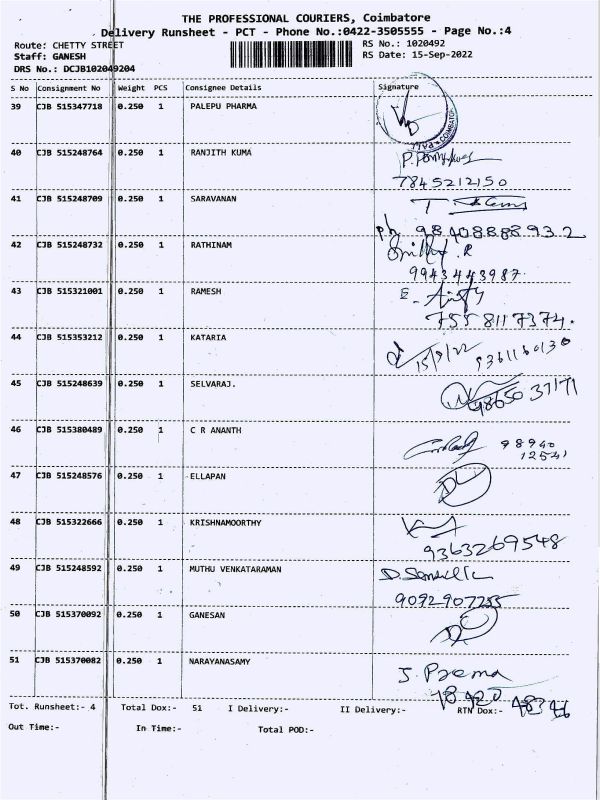 THE PROFESSIONAL COURIERS, Coimbatore
Delivery Runsheet - PCT - Phone No.:0422-3505555 - Page No.:4
Route: CHETTY STREET RS No.: 1020492
Staff: GANESH RS Date: 15-Sep-2022
DRS No.: DCJB102049204
S No Consignment No Weight PCS Consignee Details Signature
39 CJB 515347718 0.250 1 PALEPU PHARMA
COIMBATORE
40 CJB 515248764 0.250 1 RANJITH KUMA
7845212150
41 CJB 515248709 0.250 1 SARAVANAN
ph 9840888893 2
42 CJB 515248732 0.250 1 RATHINAM
9943443987.
43 CJB 515321001 0.250 1 RAMESH
7558117374.
44 CJB 515353212 0.250 1 KATARIA
15/9/22 9361160130
45 CJB 515248639 0.250 1 SELVARAJ.
9865037171
46 CJB 515380489 0.250 1 C R ANANTH
98940
12541
47 CJB 515248576 0.250 1 ELLAPAN
48 CJB 515322666 0.250 1 KRISHNAMOORTHY
9363269548
49 CJB 515248592 0.250 1 MUTHU VENKATARAMAN
9092907255
50 CJB 515370092 0.250 1 GANESAN
51 CJB 515370082 0.250 1 NARAYANASAMY
J. Prema
98420 48346
Tot. Runsheet:- 4 Total Dox:- 51 I Delivery:- II Delivery:- RTN Dox:-
Out Time:- In Time:- Total POD:-